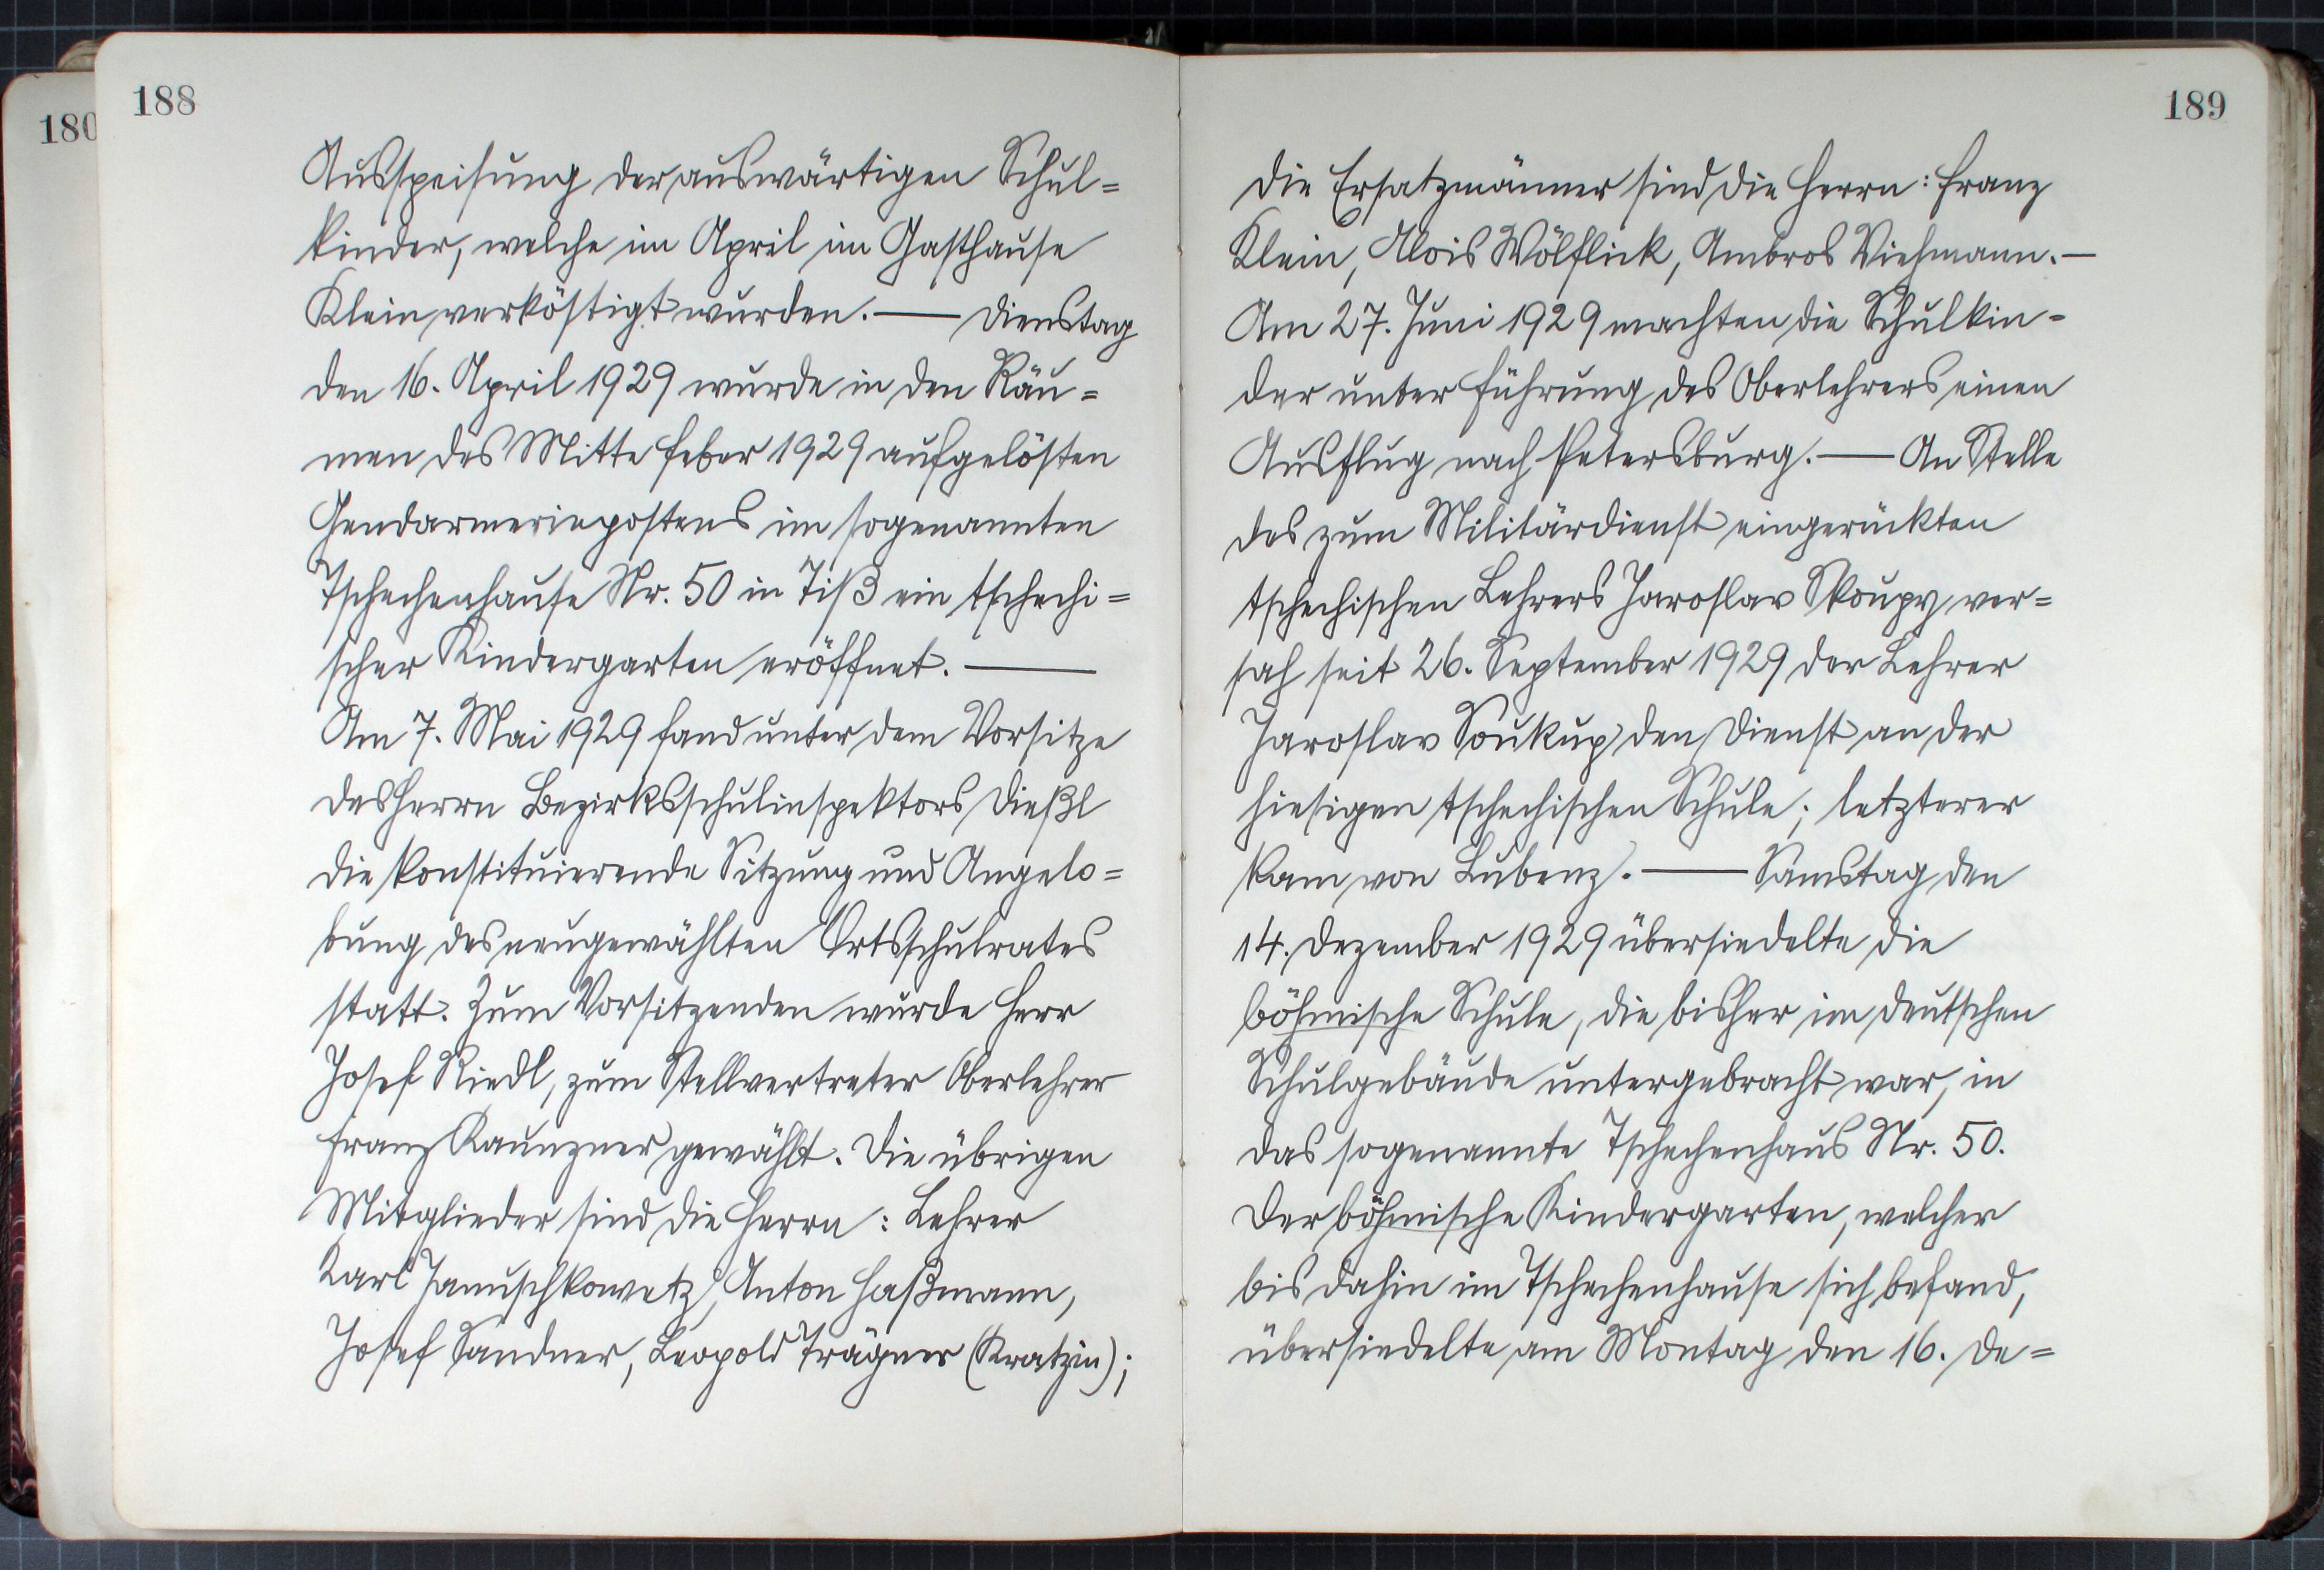 180
188
Ausspeisung der auswärtigen Schul=
kinder, welche im April im Gasthause
Klein verköstigt wurden. — Dienstag
den 16. April 1929 wurde in den Räu=
men des Mitte Feber 1929 aufgelösten
Gendarmeriepostens im sogenannten
Tschechenhause Nr. 50 in Tiß ein tschechi=
scher Kindergarten eröffnet. —
Am 7. Mai 1929 fand unter dem Vorsitze
des Herrn Bezirksschulinspektors Dießl
die konstituierende Sitzung und Angelo=
bung des neugewählten Ortsschulrates
statt. Zum Vorsitzenden wurde Herr
Josef Riedl, zum Stellvertreter Oberlehrer
Franz Kaunzner gewählt. Die übrigen
Mitglieder sind die Herrn: Lehrer
Karl Januschkowetz, Anton Haßmann,
Josef Sandner, Leopold Trägner (Kratzin);
189
Die Ersatzmänner sind die Herrn: Franz
Klein, Alois Wölflick, Ambros Viehmann. —
Am 27. Juni 1929 machten die Schulkin=
der unter Führung des Oberlehrers einen
Ausflug nach Petersburg. — An Stelle
des zum Militärdienst eingerückten
tschechischen Lehrers Jaroslav Skoupy ver=
sah seit 26. September 1929 der Lehrer
Jaroslav Soukup den Dienst an der
hiesigen tschechischen Schule; letzterer
kam von Lubenz. — Samstag den
14. Dezember 1929 übersiedelte die
böhmische Schule, die bisher im deutschen
Schulgebäude untergebracht war, in
das sogenannte Tschechenhaus Nr. 50.
Der böhmische Kindergarten, welcher
bis dahin im Tschechenhause sich befand,
übersiedelte am Montag den 16. De=